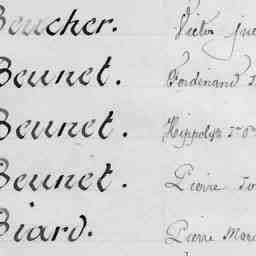 Beucher. Victor
Beunet. Ferdinand
Beunet. Hippolyte
Beunet. Pierre
Biard. Pierre